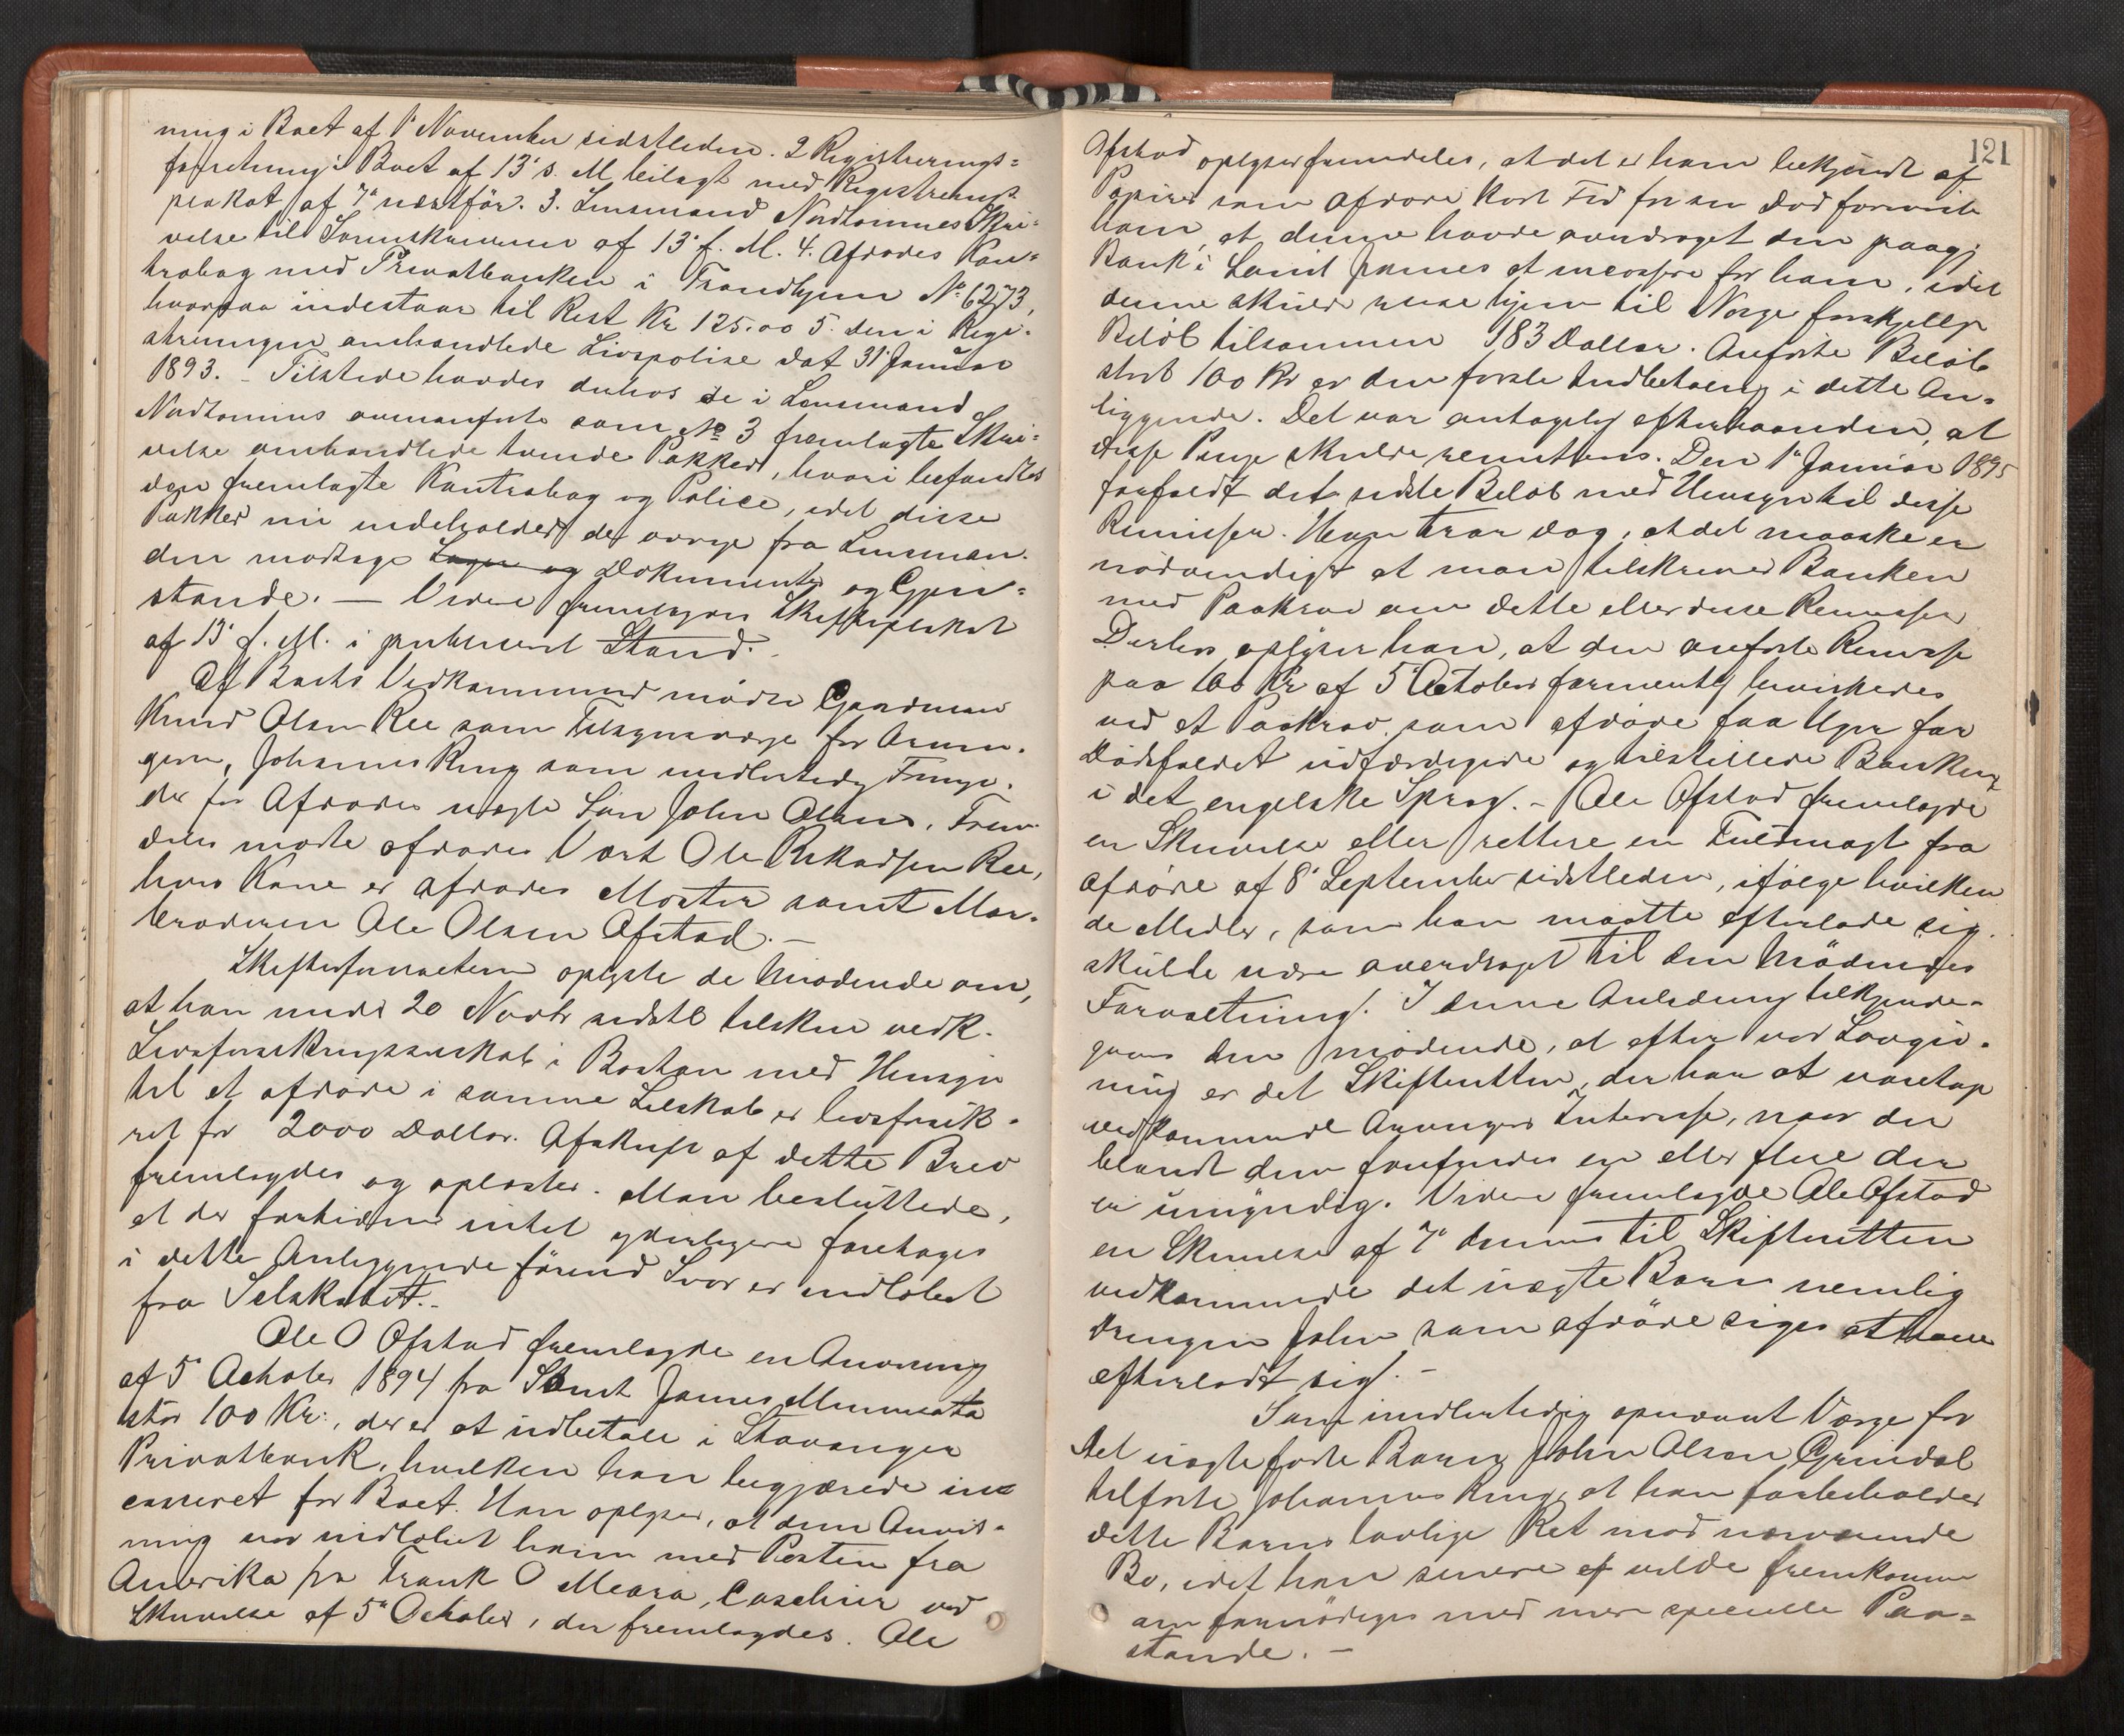 ning i Boet af 1' November sidstleden. 2 Registrerings=
forretning i Boet af 13' s. M. bilagt med Registrerings
plakat af 7' næstför. 3. Lensmand Nordtømmes Skri=
velse til Sorenskriveren af 13' f. M. 4. Afdødes Kon=
trabog med Privatbanken i Trondhjem No. 6273,
hvorpaa indestaar til Rest Kr 125.00 5. den i Regi=
streringen omhandlede Livspolise dat 31' Januar
1893. - Tilstede havdes derhos de i Lensmand
Nordtømmes ovenanførte som No 3 fremlagte Skri=
velse omhandlede tvende Pakker, hvori befandtes
den fremlagte Kontrabog og Police, idet disse
Pakker nu indeholder de övrige fra Lensman=
den modtagne Dokumenter og Gjen=
stande. — Videre fremlagdes Skifteplakat
af 13' f. M. i publiceret Stand.
Af Boets Vedkommende mödte Gaardmand
Knud Olsen Ree som Tilsynsværge for Arvin=
gen, Johannes Ring som midlertidig Funge=
der for Afdødes uægte Sön John Olsen. Frem=
deles mødte afdødes Vært Ole Rikardsen Ree,
hvis Kone er afdødes Moster samt Mor=
broderen Ole Olsen Ofstad. —
Skifteforvalteren oplyste de Mødende om,
at han under 20 Novbr sidstl tilskrev vedk.
Livsforsikringsselskab i Boston med Hensyn
til at afdøde i samme Selskab er livsforsik=
ret for 2000 Dollar. Afskrift af dette Brev
fremlagdes og oplæstes. Man besluttede,
at der forhiden intet yderligere foretages
i dette Anliggende förend Svar er indløbet
fra Selskabet. -
Ole O Ofstad fremlagde en Anvisning
af 5 October 1894 fra Saint James Minnesota
stor 100 Kr., der er at udbetale i Stavanger
Privatbank, hvilken han begjærede in=
casseret for Boet. Han oplyser, at denne Anvis=
ning var indløbet ham med Posten fra
Amerika fra Frank O Meara, Caschier ved
Skrivelse af 5' October, der fremlagdes. Ole
121
Ofstad oplyser fremdeles, at det er ham bekjendt af
Papirer som afdøde kort Tid før sin Død foreviste
ham, at denne havde overdraget den paagj
Bank i Saint James at incassere for ham, idet
denne skulde reise hjem til Norge forskjellige
Belöb tilsammen 183 Dollar. Anførte Belöb
stort 100 Kr er den første Indbetaling i dette An=
liggende. Det var antagelig efterhaanden, at
disse Penge skulde remitteres. Den 1' Januar 1895
forfaldt det sidste Belöb med Hensyn til disse
Remisser. Han tror dog, at det maaske er
nödvendigt at man tilskriver Banken
med Paakrav om dette eller disse Remisser
Derhos oplyser han, at den anførte Remisse
paa 100 Kr af 5' October formentlig bevirkedes
ved et Paakrav som afdöde faa Uger før
Dödsfaldet udfærdigede og tilstillede Banken
i det engelske Sprog. - Ole Ofstad fremlagde
en Skrivelse eller rettere en Fuldmagt fra
afdöde af 8' September sidstleden, ifölge hvilken
de Midler, som han maatte efterlade sig
skulde være overdraget til den Mödendes
Forvaltning. I denne Anledning tilkjende=
gaves den mödende, at efter vor Lovgiv=
ning er det Skifteretten, der har at varetage
vedkommende Arvingers Interesse, naar der
blandt dem forefindes en eller flere der
er umyndig. Videre fremlagde Ole Ofstad
en Skrivelse af 7' dennes til Skifteretten
vedkommende det uægte Barn nemlig
Drengen John som afdöde siges at have
efterladt sig. -
Som midlertidig opnævnt Værge for
det uægte fødte Barn John Olsen Grindal
tilførte Johannes Ring, at han forbeholder
dette Barns lovlige Ret mod nærværende
Bo, idet han senere vilde fremkomme
om fornödiges med mere specielle Paa=
stande. -